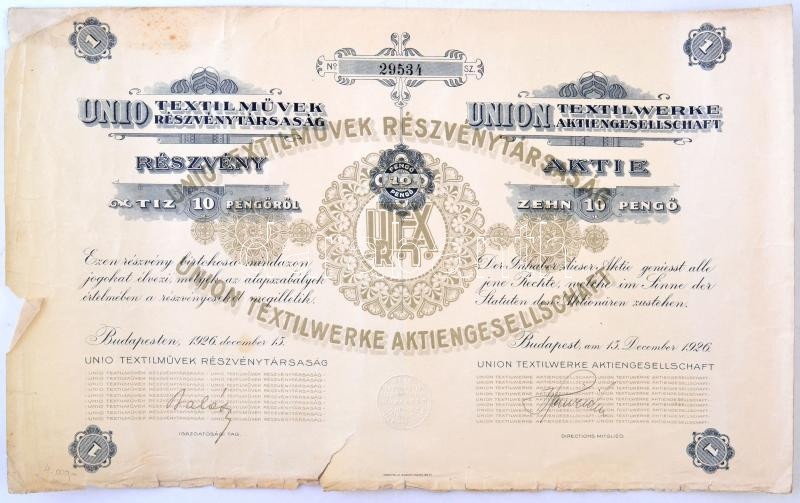 1
1
Nº 29534 SZ.
UNIO TEXTILMŰVEK
RÉSZVÉNYTÁRSASÁG
RÉSZVÉNY
TIZ 10 PENGŐRŐL
UNION TEXTILWERKE
AKTIENGESELLSCHAFT
AKTIE
ZEHN 10 PENGŐ
UNIO TEXTILMŰVEK RÉSZVÉNYTÁRSASÁG
PENGŐ
10
PENGŐ
UTEX
R.T.
UNION TEXTILWERKE AKTIENGESELLSCHAFT
Ezen részvény birtokosa mindazon
jogokat élvezi, melyek az alapszabályok
értelmében a részvényeseket megilletik.
Budapesten, 1926. december 15.
UNIO TEXTILMŰVEK RÉSZVÉNYTÁRSASÁG
IGAZGATÓSÁGI TAG.
Der Inhaber dieser Aktie geniesst alle
jene Rechte, welche im Sinne der
Statuten den Aktionären zustehen.
Budapest, am 15. December 1926.
UNION TEXTILWERKE AKTIENGESELLSCHAFT
DIRECTIONS MITGLIED.
1
1
4.000-